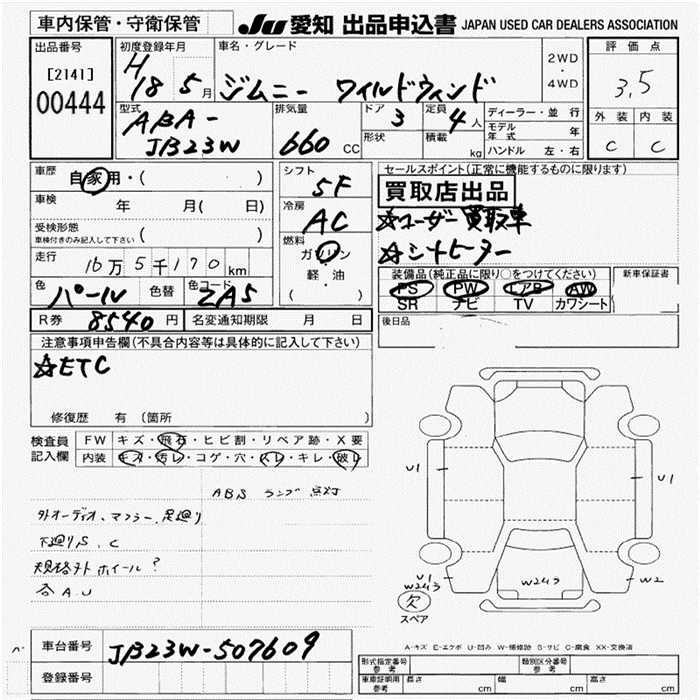 車内保管・守衛保管 JU 愛知 出品申込書 JAPAN USED CAR DEALERS ASSOCIATION
出品番号 初度登録年月 車名・グレード 2WD・4WD 評価点
[2141] H 18 5月 ジムニー ワイルドウィンド 3.5
00444
型式 排気量 ドア 定員 ディーラー・並行 外装 内装
ABA- 3 4人 モデル年式 年
JB23W 660 CC 形状 積載 kg ハンドル 左・右 C C
車歴 自家用・( ) シフト セールスポイント(正常に機能するものに限ります)
5F 買取店出品
車検 年 月( 日) 冷房 ☆ユーザー買取車
AC
受検形態 ( ) 燃料 ☆シートヒーター
車検付きのみ記入して下さい
走行 16万5千170km ガソリン 装備品(純正品に限り○をつけてください) 新車保証書
軽・油 PS PW エアB AW
色 パール 色替 色コード ZA5 ( ) SR ナビ TV カワシート
R券 8540円 名変通知期限 月 日 後日品
注意事項申告欄(不具合内容等は具体的に記入して下さい)
☆ETC
修復歴 有 (箇所 )
検査員 FW キズ・飛石・ヒビ割・リペア跡・X要
記入欄 内装 キズ・汚レ・コゲ・穴・スレ・キレ・破レ
ABSランプ点灯
外オーディオ、マフラー、足廻り
下廻りS、C
規格外ホイール?
各A.U
U1 U1
U1
W2U3 W2U3 W2
欠
スペア
A-キズ E-エクボ U-凹み W-補修跡 S-サビ C-腐食 XX-交換済
車台番号 JB23W-507609
登録番号
形式指定番号 参考 類別区分番号 参考
車庫証明用 参考 長さ cm 幅 cm 高さ cm